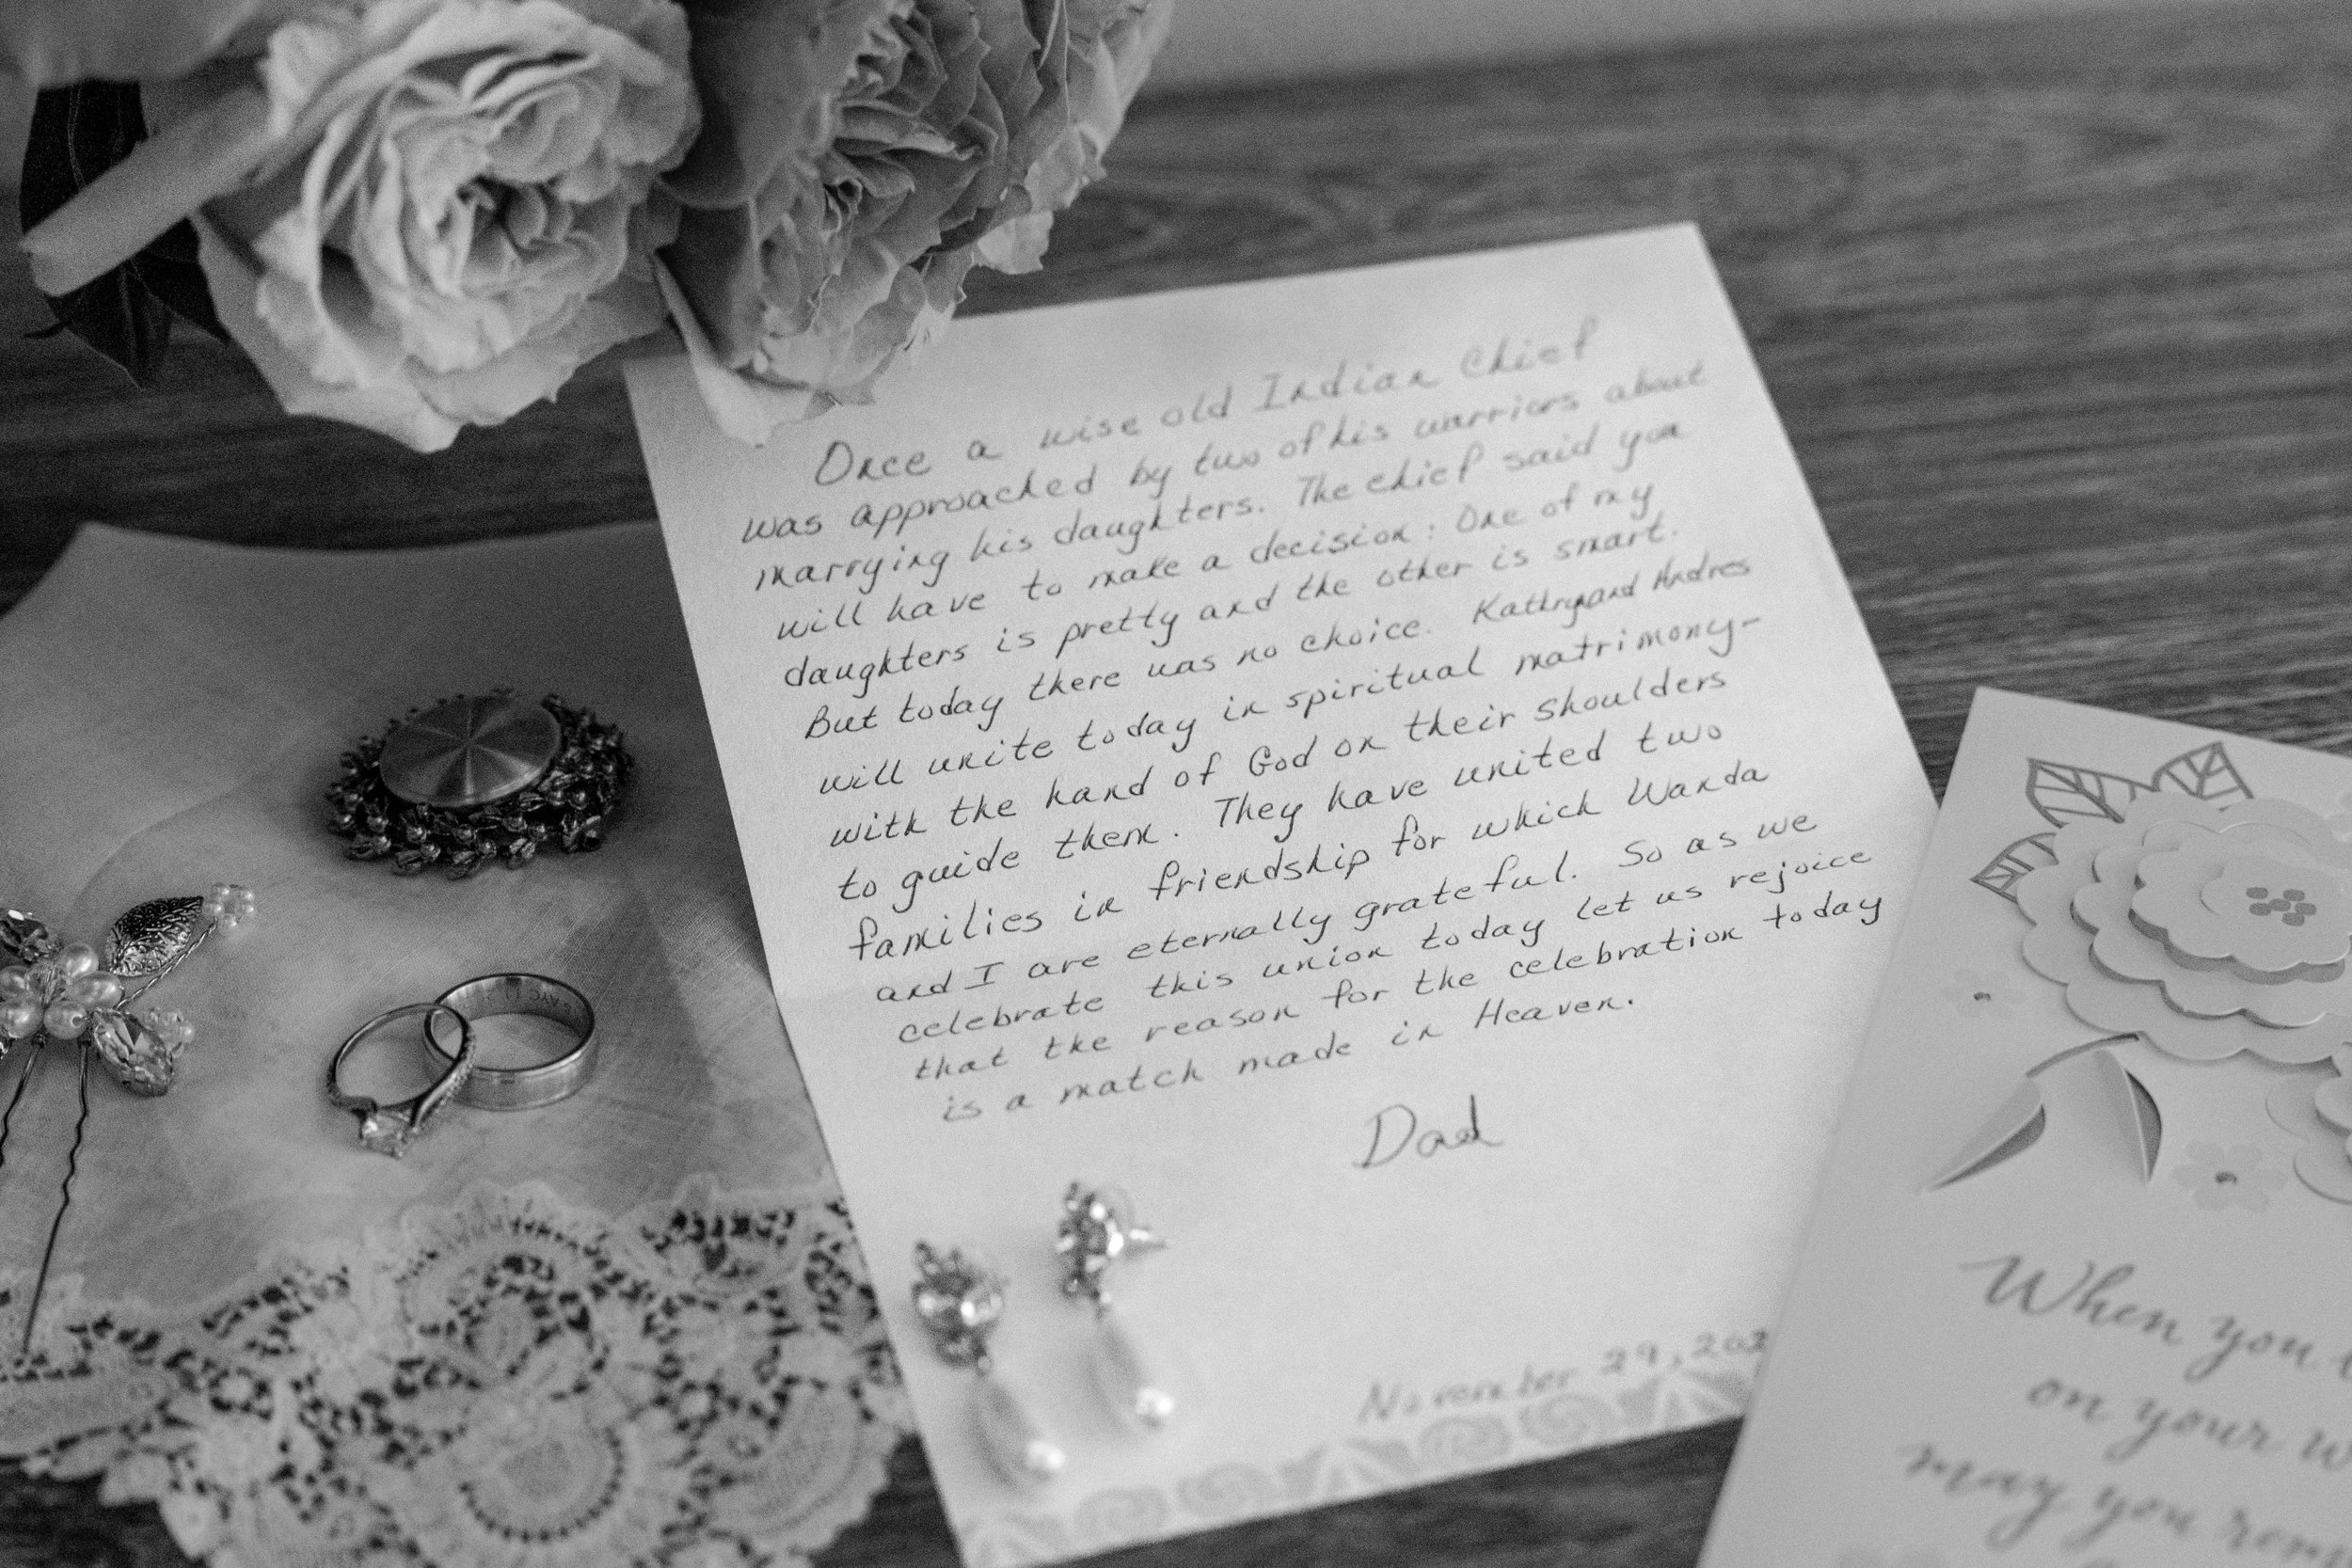 Once a wise old Indian Chief
was approached by two of his warriors about
marrying his daughters. The chief said you
will have to make a decision: One of my
daughters is pretty and the other is smart.
But today there was no choice. Kathryn and Andres
will unite today in spiritual matrimony-
with the hand of God on their shoulders
to guide them. They have united two
families in friendship for which Wanda
and I are eternally grateful. So as we
celebrate this union today let us rejoice
that the reason for the celebration today
is a match made in Heaven.
Dad
November 29, 202
When you
on your w
may you rem